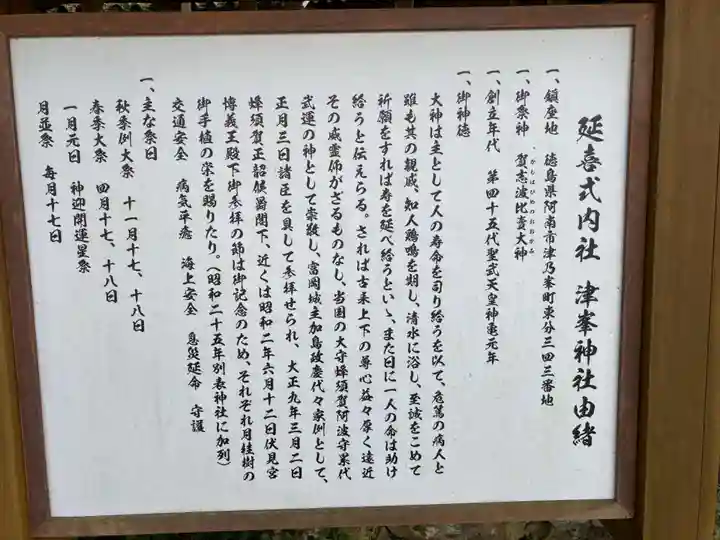 延喜式内社 津峯神社由緒
一、鎮座地 徳島県阿南市津乃峯町東分三四三番地
一、御祭神 賀志波比賣大神
かしはひめのおおかみ
一、創立年代 第四十五代聖武天皇神亀元年
一、御神徳
大神は主として人の寿命を司り給うを以て、危篤の病人と
雖も其の親戚、知人鶏鳴を期し、清水に浴し、至誠をこめて
祈願をすれば寿を延べ給うといゝ、また日に一人の命は助け
給うと伝えらる。されば古来上下の尊心益々厚く遠近
その威霊仰がざるものなし、当国の大守蜂須賀阿波守累代
武運の神として崇敬し、富岡城主加島政慶代々家例として、
正月三日諸臣を具して参拝せられ、大正九年三月二日
蜂須賀正韶侯爵閣下、近くは昭和二年六月十二日伏見宮
博義王殿下御参拝の節は御記念のため、それぞれ月桂樹の
御手植の栄を賜りたり。(昭和二十五年別表神社に加列)
交通安全 病気平癒 海上安全 息災延命 守護
一、主な祭日
秋季例大祭 十一月十七、十八日
春季大祭 四月十七、十八日
一月元旦 神迎開運星祭
月並祭 毎月十七日